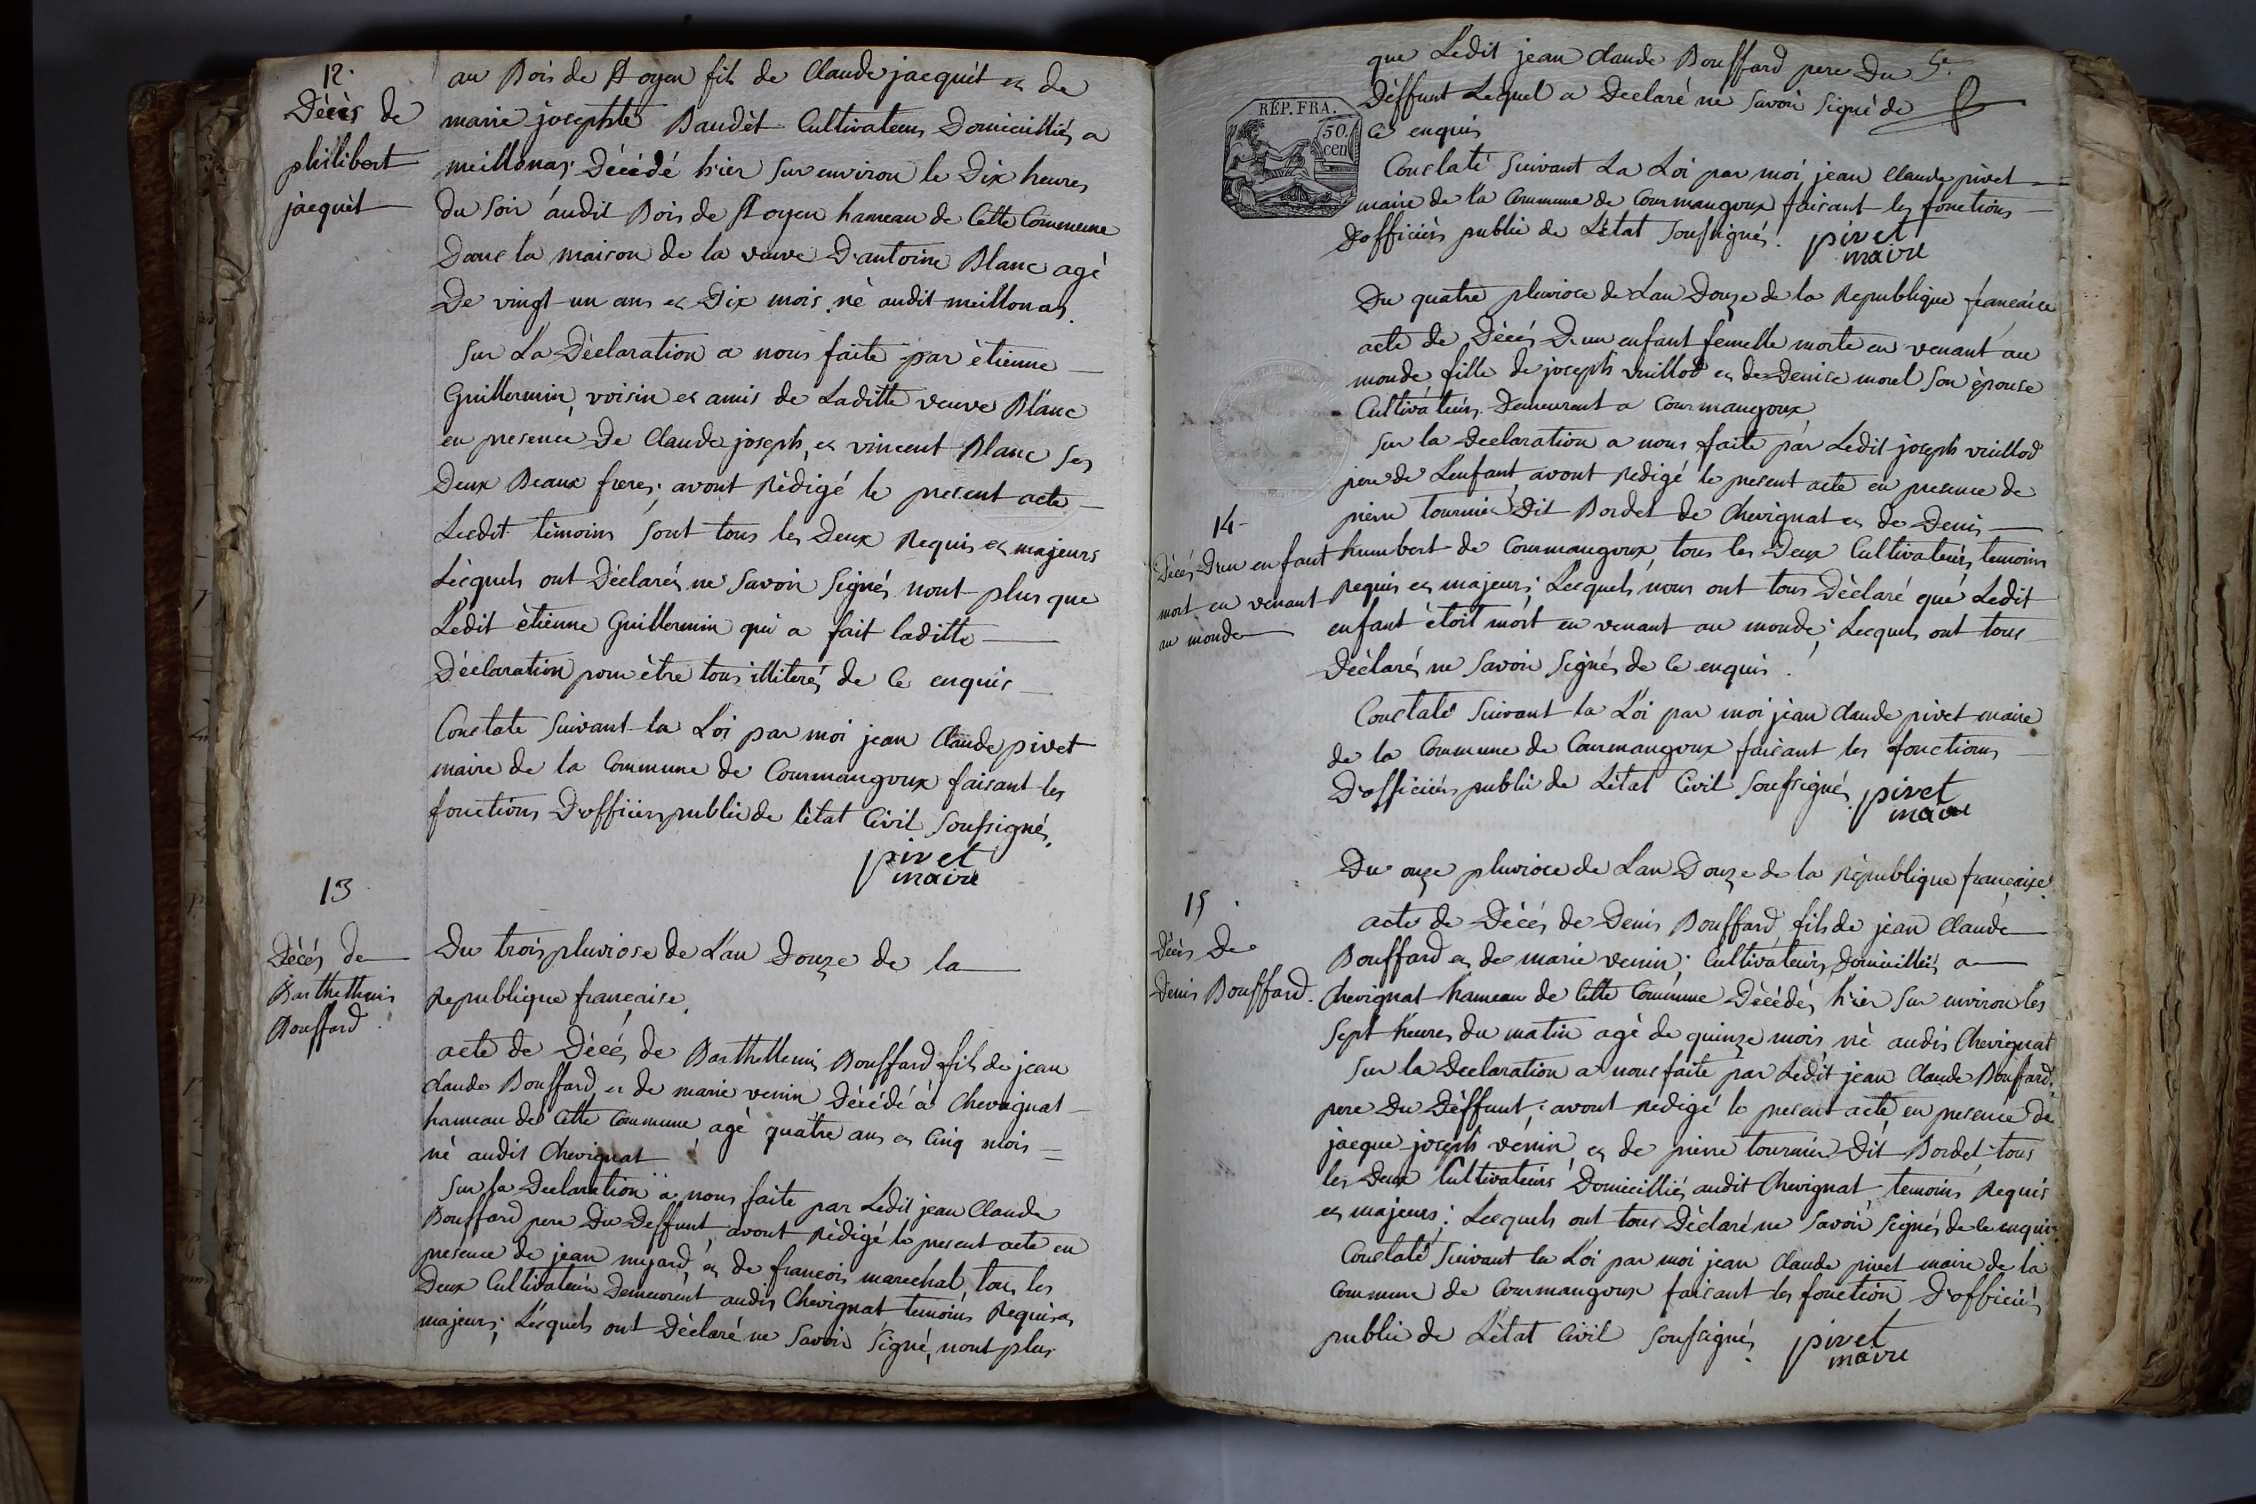 12.
Décès de
philibert
jacquèt
au Bois de St oyen fils de Claude jacquèt et de
marie josephte Baudèt Cultivateurs Domicilliés a
meillonas; Décédé hier sur environ le Dix heures
du soir audit Bois de St oyen hameau de Cette Commune
Dans la maison de la veuve D'antoine Blanc agé
De vingt un ans et Dix mois né audit meillonas.
Sur La Déclaration a nous faite par ètienne
Guillermin, voisin et amis de Laditte veuve Blanc
en presence De Claude joseph, et vincent Blanc ses
Deux Beaux freres; avont Rédigé le present acte
Lesdit tèmoins sont tous les Deux Requis et majeurs
Lesquels ont Déclarés ne savoir Signés nont plus que
Ledit ètienne Guillermin qui a fait laditte
Déclaration pour être tous illiterés de Ce enquis
Constate Suivant la Loi par moi jean Claude pivet
maire de la Commune de Courmangoux faisant les
fonctions D'officiers public de l'ètat Civil Soussignés.
pivet
maire
13
Décés de
Barthellemis
Bouffard.
Du trois pluviose de L'an Douze de la
Republique française.
acte de Décés de Barthellemis Bouffard fils de jean
Claude Bouffard et de marie venin Décédé à Chevignat
hameau de Cette Commune agé quatre ans et Cinq mois
né audit Chevignat
Sur la Declaration a nous faite par Ledit jean Claude
Bouffard pere Du Deffunt, avont Rédigé le present acte en
presence de jean nujard, et de francois marechal, tous les
Deux Cultivateurs Demeurent audis Chevignat temoins Requis et
majeurs; Lesquels ont Déclaré ne savoir Signé, nont plus
que Ledit jean Claude Bouffard pere Du
Déffunt Lequel a Declaré ne savoir Signé de
Ce enquis
RÉP. FRA.
50.
cen
Constaté Suivant La Loi par moi jean Claude pivet
maire de la Commune de Courmangoux faisant les fonctions
D'officiers public de L'ètat Soussignés.
pivet
maire
Du quatre pluviose de L'an Douze de la Republique française
acte de Décés D'un enfant femelle morte en venant au
monde, fille de joseph vuillod et de Denise morel son èpouse
Cultivateurs Demeurent a Courmangoux
Sur la Declaration a nous faite par Ledit joseph vuillod
pere de L'enfant, avont Redigé le present acte en presence de
pierre tournier Dit Bordet de Chevignat et de Denis
14
Décés D'un enfant
mort en venant
au monde
humbert de Courmangoux, tous les Deux Cultivateurs, temoins
Requis et majeurs; Lesquels nous ont tous Déclaré que Ledit
enfant ètoit mort en venant au monde; Lesquels ont tous
Déclarés ne savoir Signés de Ce enquis.
Constaté Suivant la Loi par moi jean Claude pivet maire
de la Commune de Courmangoux faisant les fonctions
D'officiers public de L'ètat Civil Soussignés.
pivet
maire
15
Décès De
Denis Bouffard.
Du onze pluviose de L'an Douze de la République française.
acte de Décés de Denis Bouffard fils de jean Claude
Bouffard et de marie venin; Cultivateurs Domicilliés a
Chevignat hameau de Cette Commune Décédés hier sur environ les
Sept heures du matin agé de quinze mois né audis Chevignat
Sur la Declaration a nous faite par Ledit jean Claude Bouffard,
pere Du Déffunt; avont Rédigé le present acte en presence de
jacque joseph vénin, et de pierre tournier Dit Bordet, tous
les Deux Cultivateurs Domicilliés audit Chevignat, temoins Requis
et majeurs; Lesquels ont tous Déclaré ne savoir Signés de Ce enquis.
Constaté Suivant la Loi par moi jean Claude pivet maire de la
Commune de Courmangoux faisant les fonction D'officiés
public de L'ètat Civil Soussignés.
pivet
maire